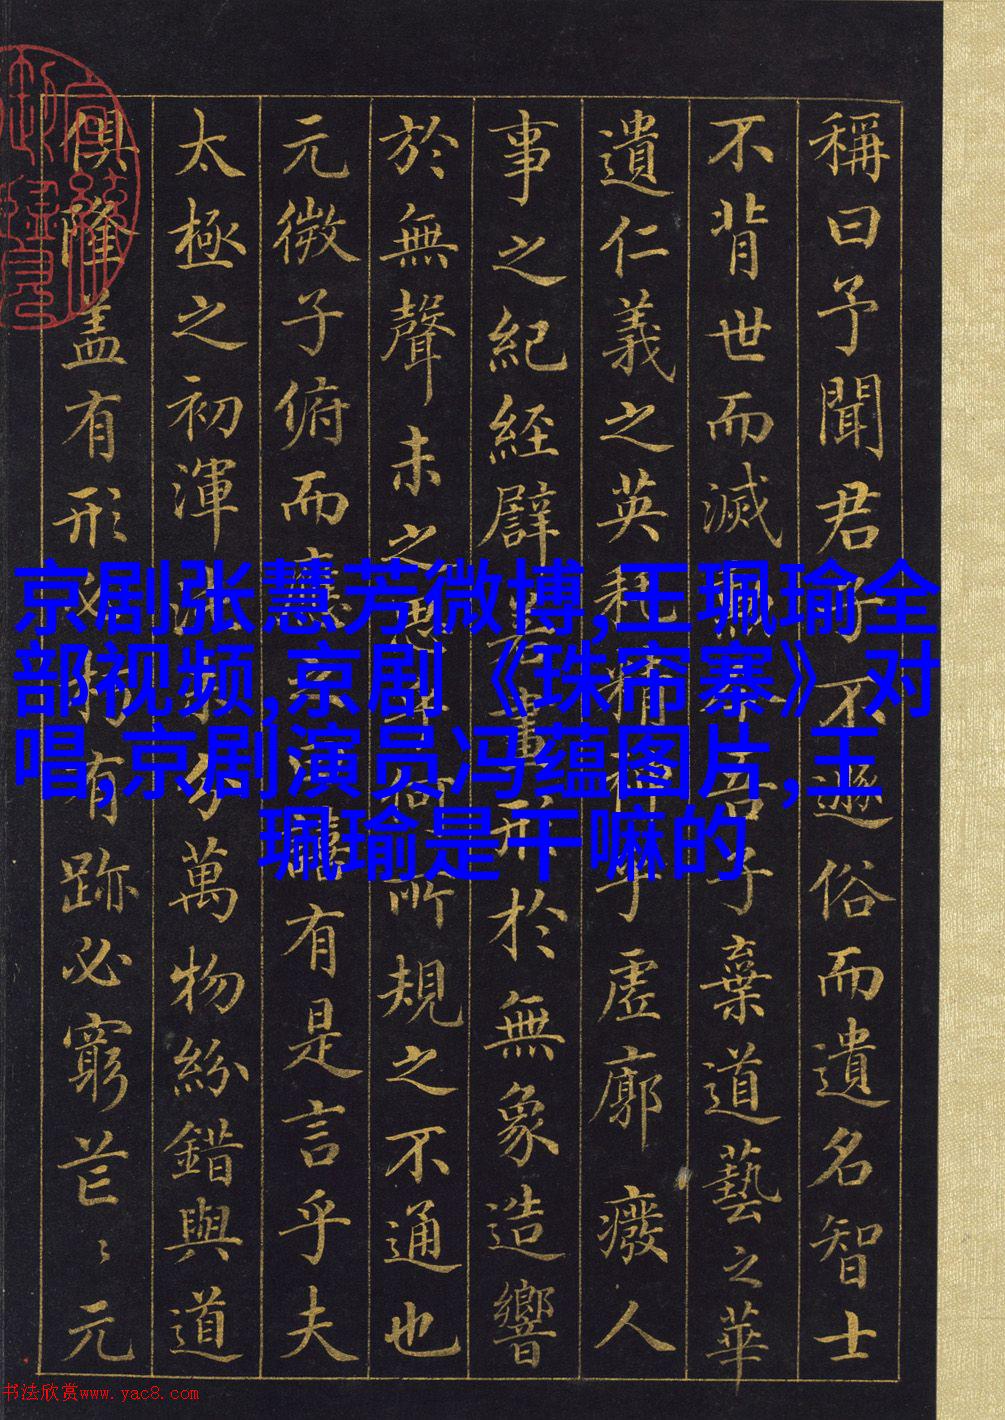 稱曰予聞君子不遯俗而遺名智士
不背世而滅吾子棄道藝之華
遺仁義之英耗精神乎虛廓癈人
事之紀經譬若畫形於無象造響
於無聲未之思乎何所規之不通也
元微子俯而應有是言乎夫
太極之初渾沌未分萬物紛錯與道
俱隆盖有形必朽有跡必窮芒〻元
京剧张慧芳微博,王珮瑜全
部视频,京剧《珠帘寨》对
唱,京剧演员冯蕴图片,王
珮瑜是干嘛的
书法欣赏www.yac8.com